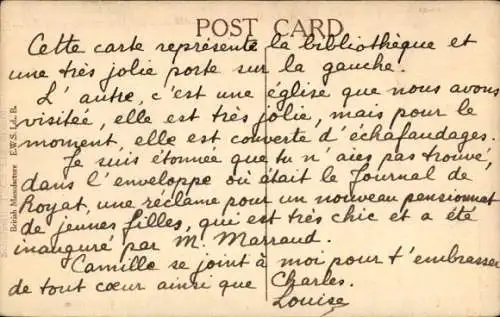 POST CARD
Cette carte représente la bibliothèque et
une très jolie porte sur la gauche.
L'autre, c'est une église que nous avons
visitée, elle est très jolie, mais pour le
moment, elle est couverte d'échafaudages.
Je suis étonnée que tu n'aies pas trouvé,
dans l'enveloppe où était le Journal de
Royat, une réclame pour un nouveau pensionnat
de jeunes filles, qui est très chic et a été
inauguré par M. Marraud.
Camille se joint à moi pour t'embrasser
de tout cœur ainsi que Charles.
Louise
British Manufacture